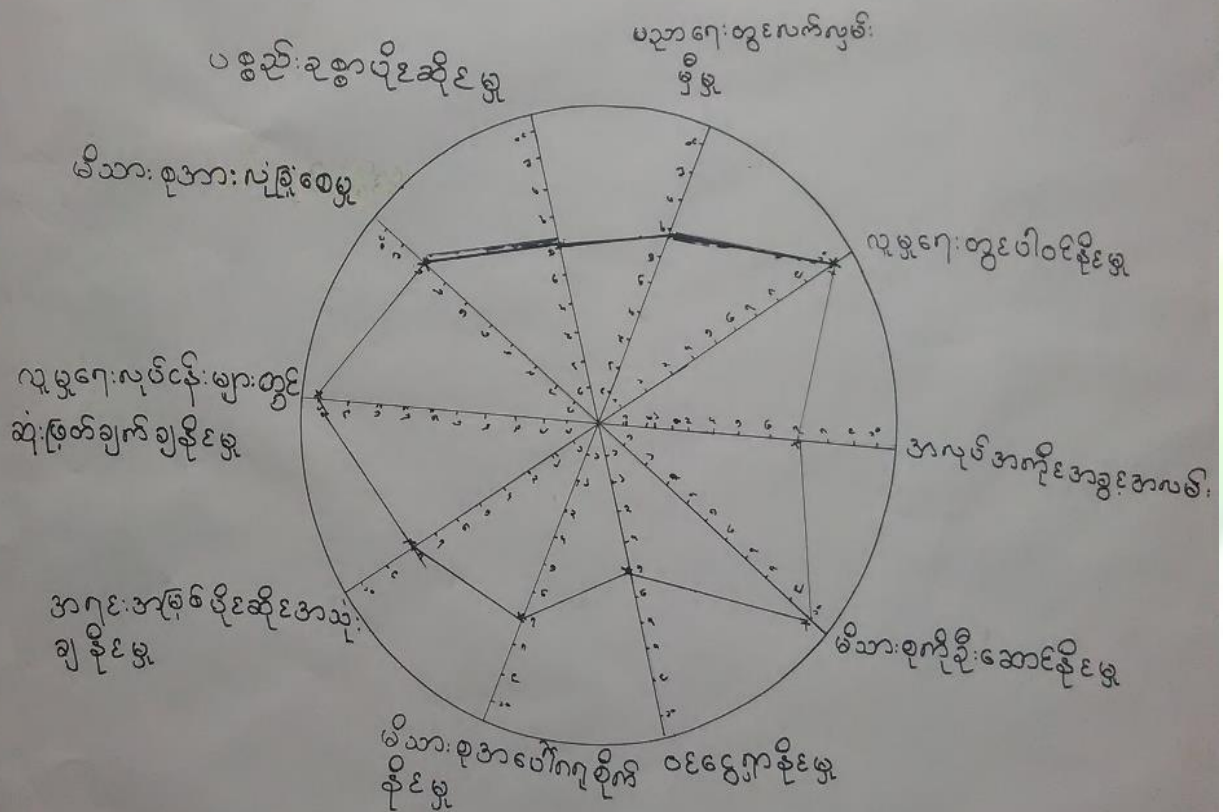 ပညာရေးတွင်လက်လှမ်း
မှီမှု
ပစ္စည်းဥစ္စာပိုင်ဆိုင်မှု
မိသားစုအားလုံခြုံစေမှု
လူမှုရေးတွင်ပါဝင်နိုင်မှု
လူမှုရေးလုပ်ငန်းများတွင်
ဆုံးဖြတ်ချက်ချနိုင်မှု
အလုပ်အကိုင်အခွင့်အလမ်း
အရင်းအမြစ်ပိုင်ဆိုင်အသုံး
ချနိုင်မှု
မိသားစုကိုဦးဆောင်နိုင်မှု
မိသားစုအပေါ်ဂရုစိုက်
နိုင်မှု
ဝင်ငွေရှာနိုင်မှု